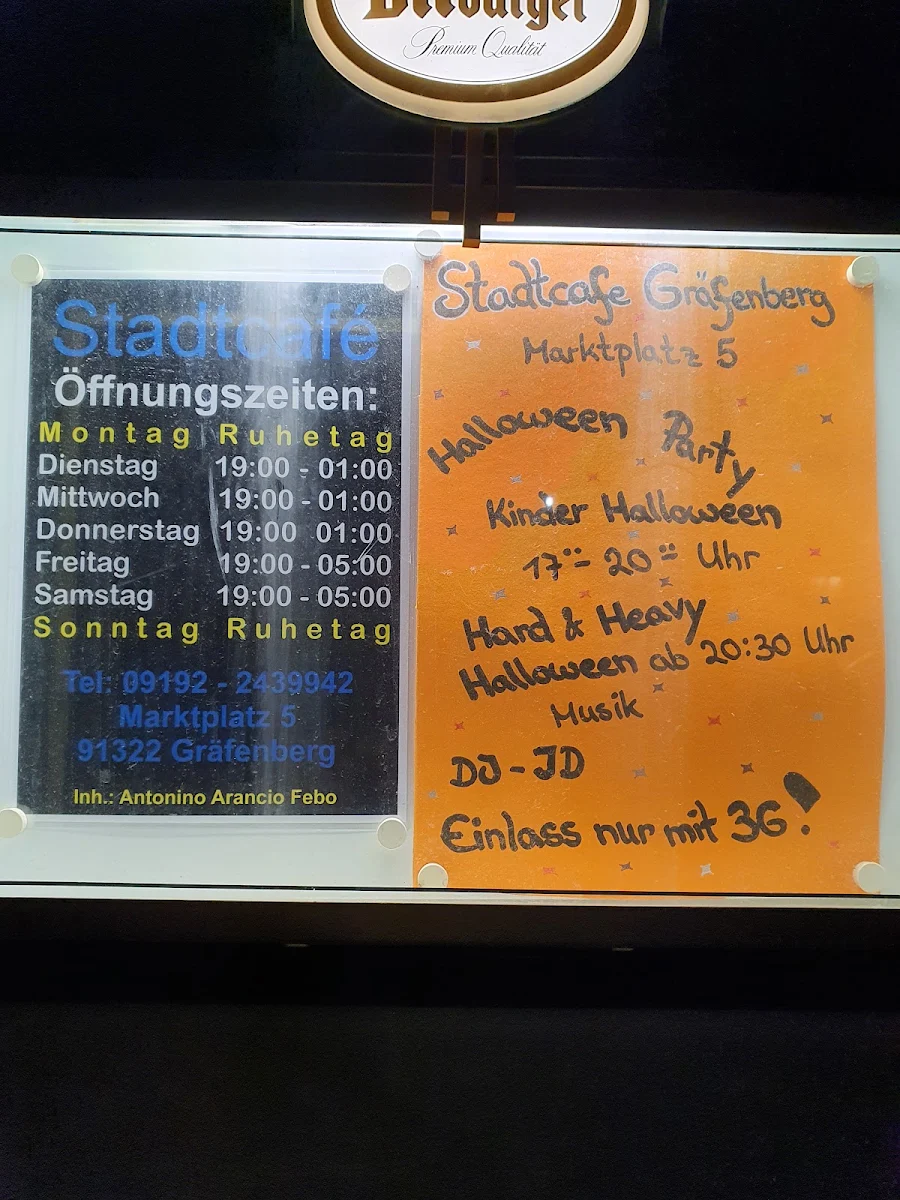 Bitburger
Premium Qualität
Stadtcafé
Öffnungszeiten:
Montag Ruhetag
Dienstag 19:00 - 01:00
Mittwoch 19:00 - 01:00
Donnerstag 19:00 01:00
Freitag 19:00 - 05:00
Samstag 19:00 - 05:00
Sonntag Ruhetag
Tel: 09192 - 2439942
Marktplatz 5
91322 Gräfenberg
Inh.: Antonino Arancio Febo
Stadtcafe Gräfenberg
Marktplatz 5
Halloween Party
Kinder Halloween
17°° - 20°° Uhr
Hard & Heavy
Halloween ab 20:30 Uhr
Musik
DJ - JD
Einlass nur mit 3G!